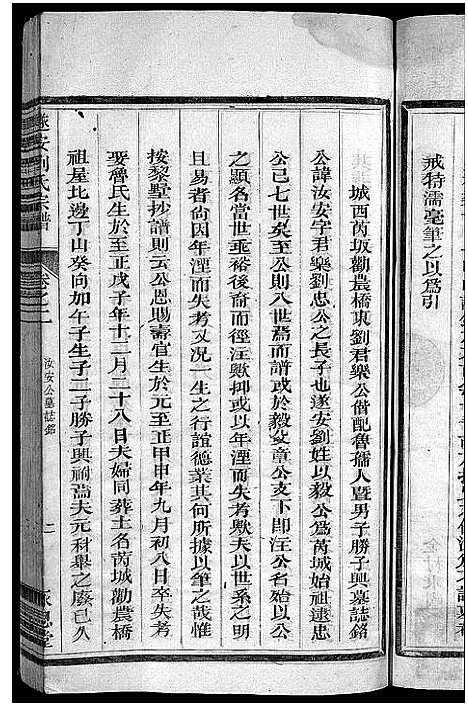 戒特濡毫筆之以爲引
城西芮坂勸農橋東劉君樂公偕配魯孺人暨男子勝子興墓誌銘
公諱汝安字君樂劉忠公之長子也遂安劉姓以毅公爲芮城始祖逮忠
公已七世矣至公則八世焉而譜或於毅文章公支下即注公名始以公
之顯名當世垂裕後裔而徑注歟抑或以年湮而失考歟夫以世系之明
且易者尙因年湮而失考又况一生之行誼德業其何所據以筆之哉惟
按黎墅抄譜則云公恩賜壽官生於元至正甲申年九月初八日卒失考
娶魯氏生於至正戊子年十二月二十八日夫婦同葬土名芮城勸農橋
祖屋北邊丁山癸向加午子生子二子勝子興嗣焉夫元科舉之廢已久
遂安劉氏宗譜
卷之二
汝安公墓誌銘
二